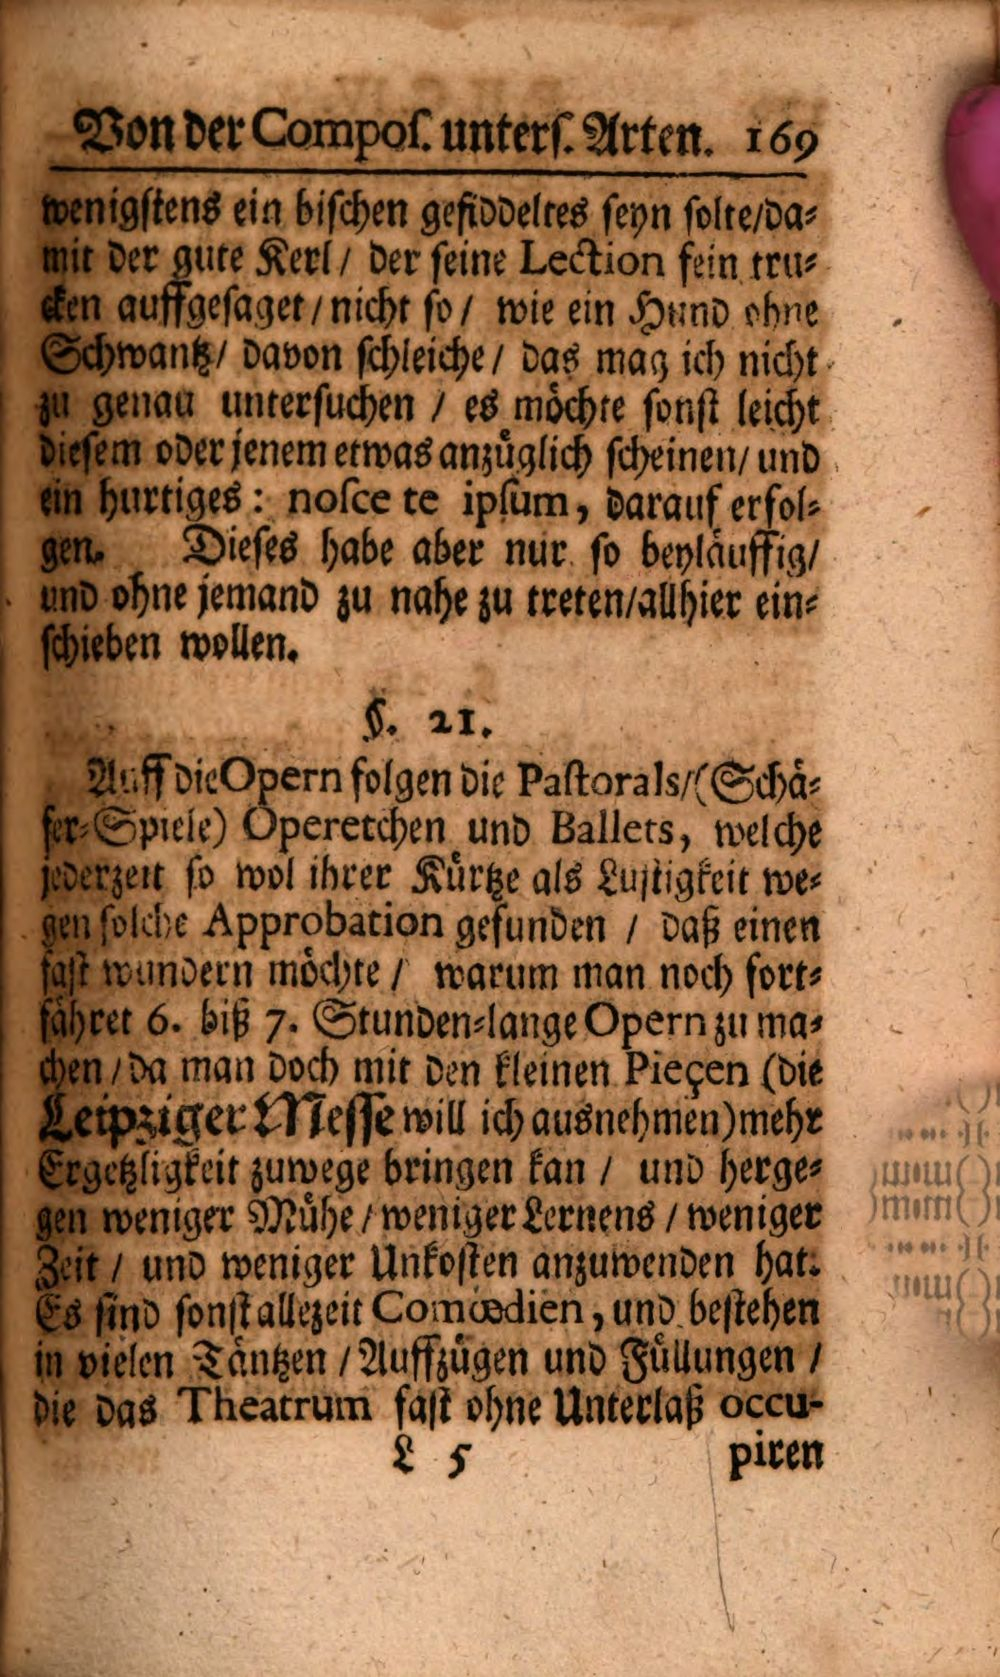 Von der Compos. unters. Arten. 169
wenigstens ein bischen gefiddeltes seyn solte/da-
mit der gute Kerl/ der seine Lection fein tru-
cken auffgesaget/nicht so/ wie ein Hund ohne
Schwantz/ davon schleiche/ das mag ich nicht
zu genau untersuchen / es möchte sonst leicht
diesem oder jenem etwas anzüglich scheinen/ und
ein hurtiges: nosce te ipsum, darauf erfol-
gen. Dieses habe aber nur so beyläuffig/
und ohne jemand zu nahe zu treten/allhier ein-
schieben wollen.
§. 21.
Auff die Opern folgen die Pastorals/(Schä-
fer-Spiele) Operetchen und Ballets, welche
jederzeit so wol ihrer Kürtze als Lustigkeit we-
gen solche Approbation gefunden / daß einen
fast wundern möchte / warum man noch fort-
fähret 6. biß 7. Stunden-lange Opern zu ma-
chen/da man doch mit den kleinen Pieçen (die
Leipziger Messe will ich ausnehmen) mehr
Ergetzligkeit zuwege bringen kan / und herge-
gen weniger Mühe/weniger Lernens/weniger
Zeit / und weniger Unkosten anzuwenden hat.
Es sind sonst allezeit Comœdien, und bestehen
in vielen Täntzen /Auffzügen und Füllungen /
die das Theatrum fast ohne Unterlaß occu-
L 5 piren